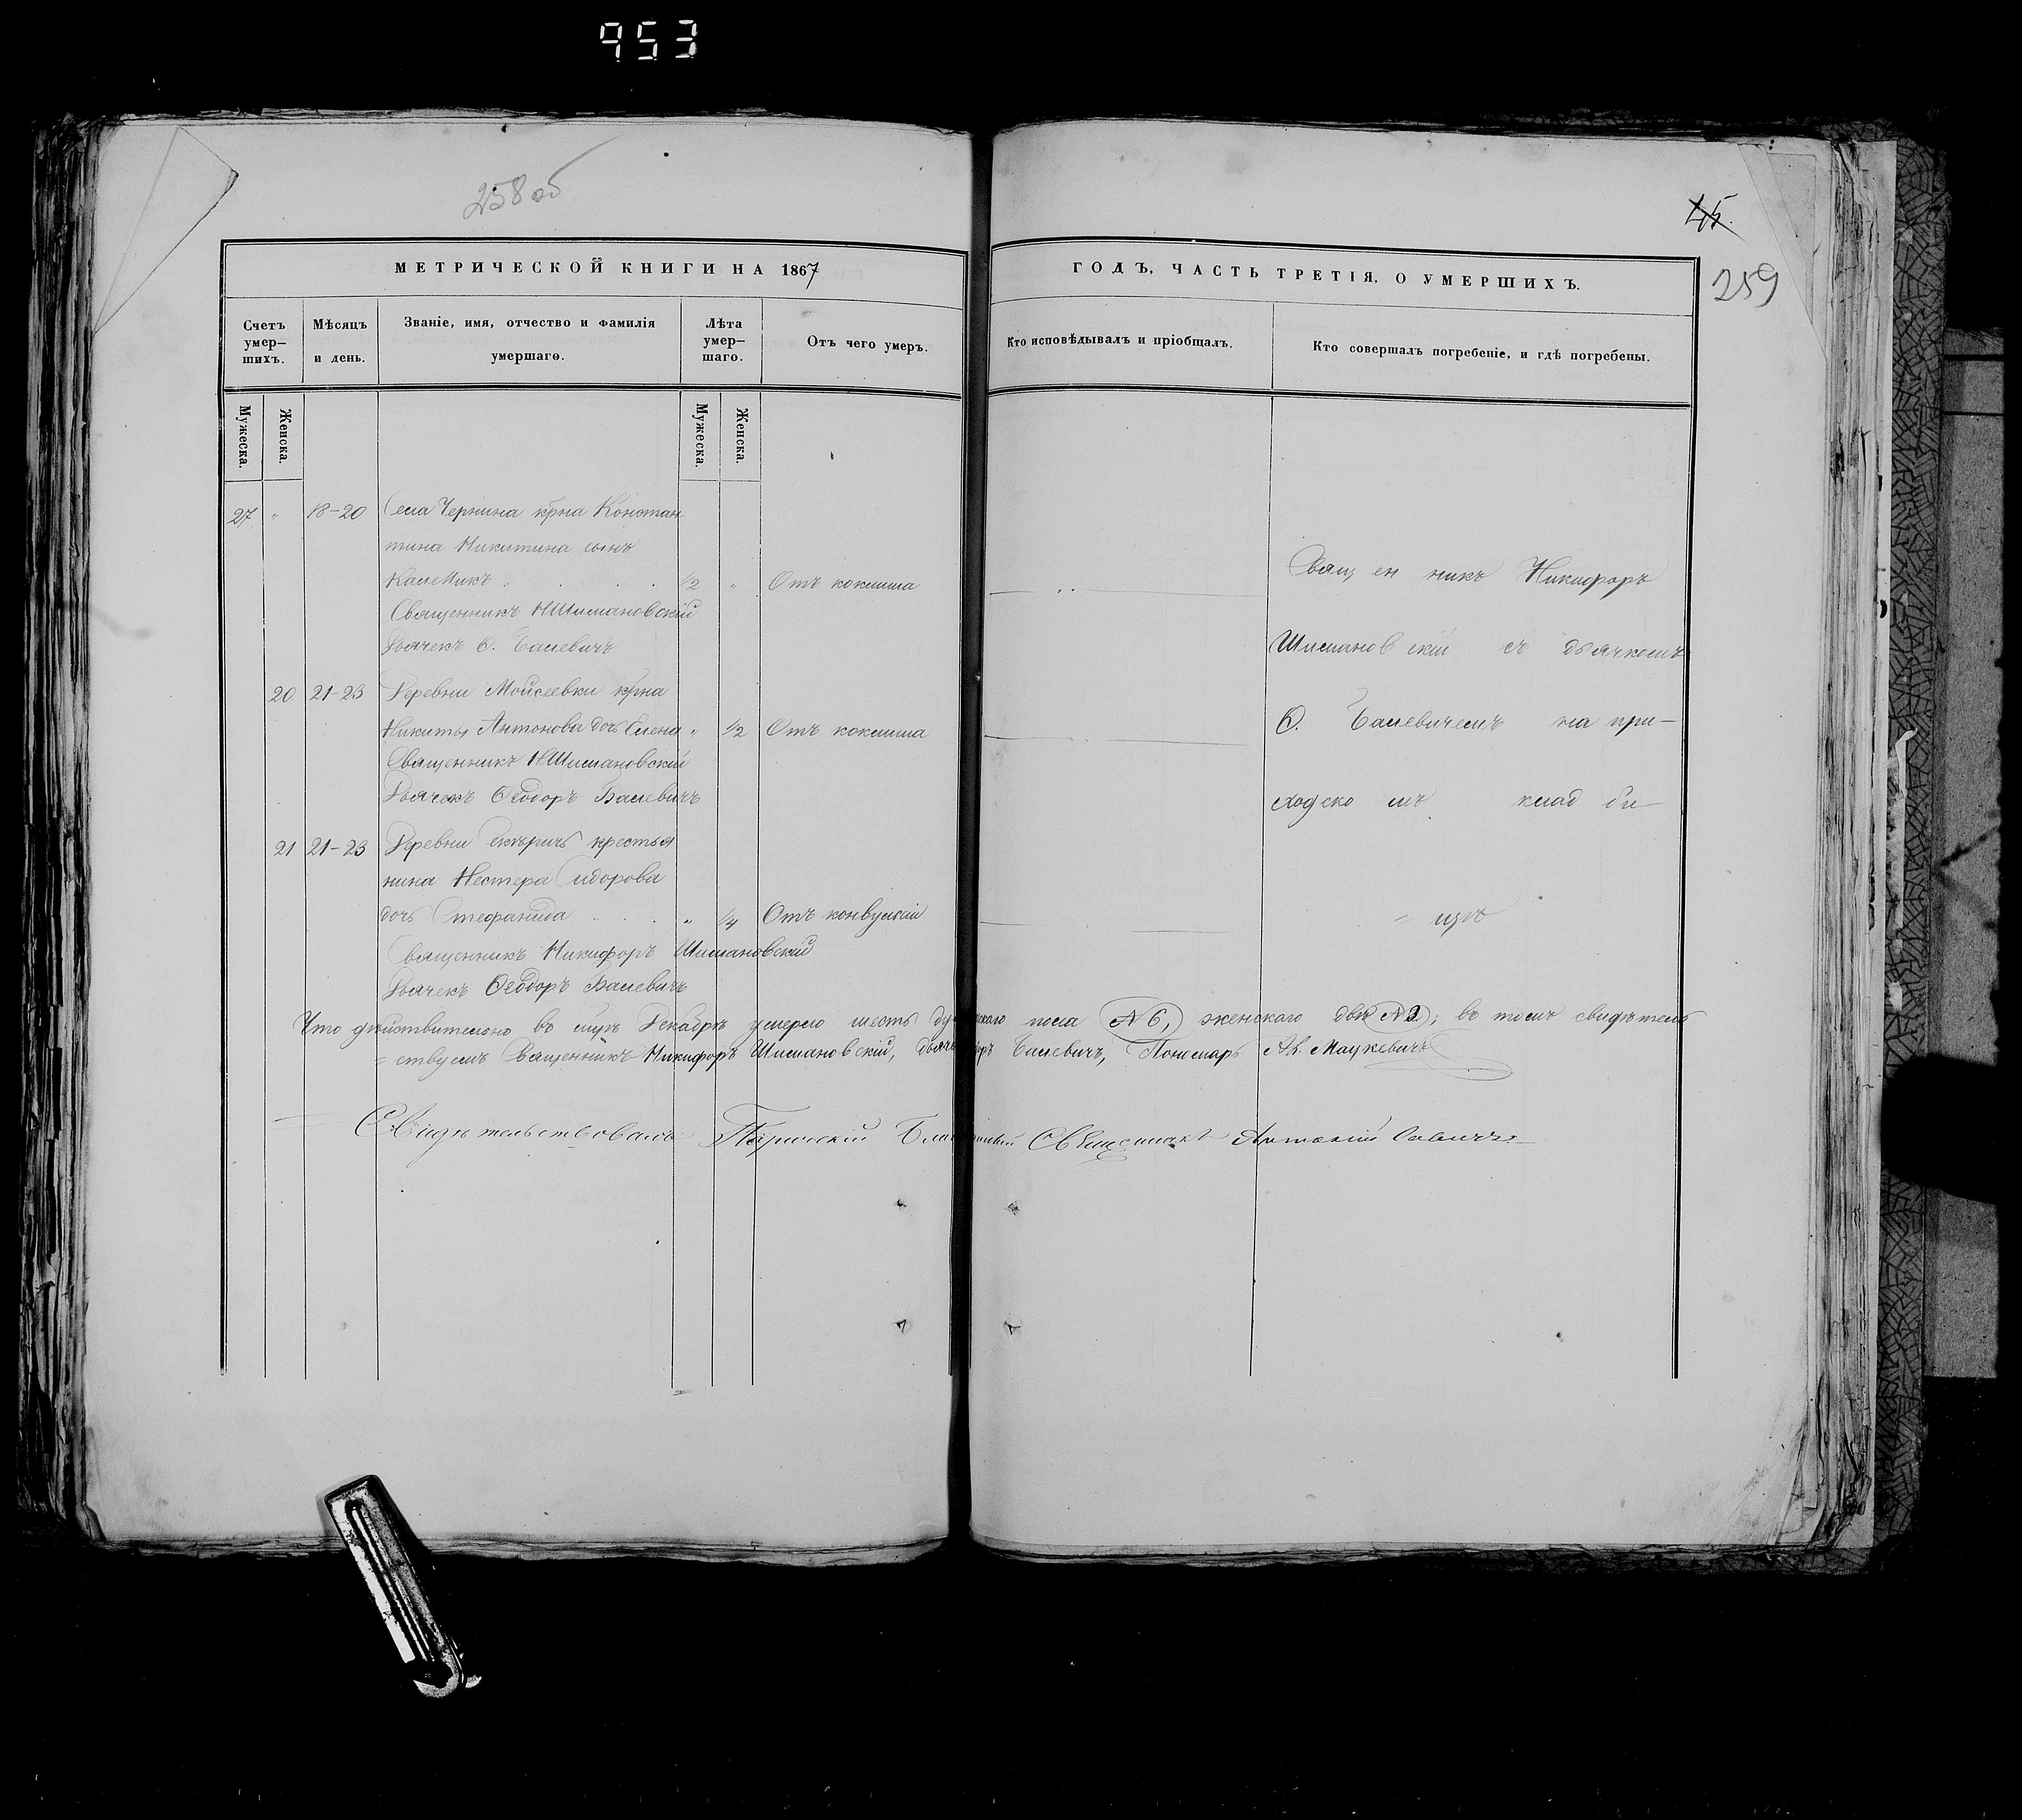 953
258 об
45.
259
МЕТРИЧЕСКОЙ КНИГИ НА 1867
ГОДЪ, ЧАСТЬ ТРЕТІЯ, О УМЕРШИХЪ.
Счетъ умер-шихъ.
Мѣсяцъ и день.
Званіе, имя, отчество и фамилія умершаго.
Лѣта умер-шаго.
Отъ чего умеръ.
Кто исповѣдывалъ и пріобщалъ.
Кто совершалъ погребеніе, и гдѣ погребены.
Мужеска.
Женска.
Мужеска.
Женска.
27 " 18-20 Села Чернина крна Констан
тина Никитина сынъ
1/2 " Отъ коклюша
Священникъ Н Шимановскій
Дьячекъ Ѳ. Балевичъ
20 21-23 Деревни Мойсеевки крна
Никиты Антонова дочь Елена " 1/2 Отъ коклюша
Священникъ Н Шимановскій
Дьячекъ Ѳеодоръ Балевичъ
21 21-23 Деревни крестья
нина Нестера Сидорова
дочь Стефанида " 1/4 Отъ конвульсій
Священникъ Никифоръ Шимановскій
Дьячекъ Ѳеодоръ Балевичъ
Священникъ Никифоръ
Шимановскій съ дьячкомъ
Ѳ. Балевичемъ на при-
ходскомъ кладби-
= щѣ
Что дѣйствительно въ мцѣ Декабрѣ умерло шесть пола № 6, женскаго двѣ № 2; въ томъ свидѣтель
= ствуемъ Священникъ Никифоръ Шимановскій, Балевичъ, Пономарь Ал. Мацкевичъ
Свидѣтельствовалъ Паричскій Священникъ Антоній